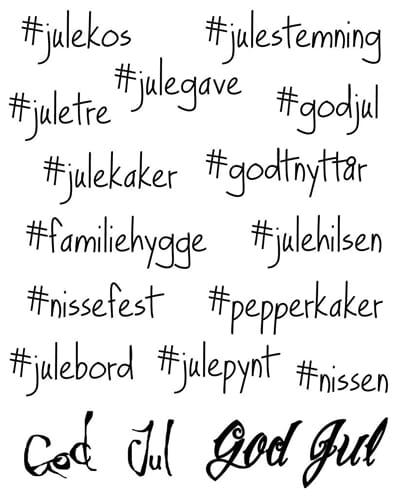 #julekos #julestemning
#julegave
#juletre #godjul
#julekaker #godtnyttår
#familiehygge #julehilsen
#nissefest #pepperkaker
#julebord #julepynt #nissen
God Jul God Jul